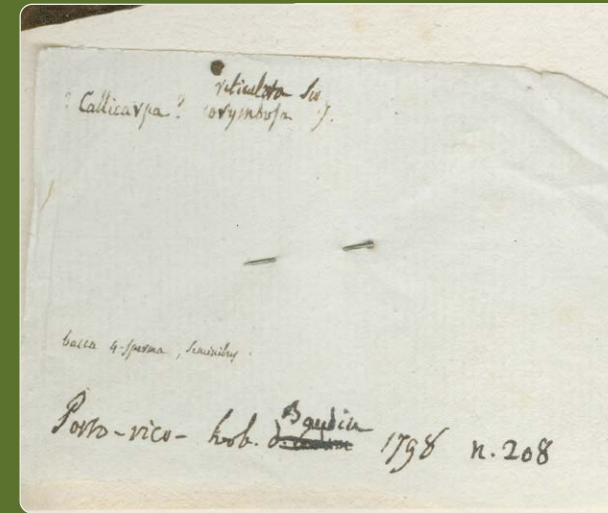 reticulata Sw.
? Callicarpa? corymbosa
bacca 4-sperma, seminibus.
Baudin
Porto-rico- herb. 1798 n. 208